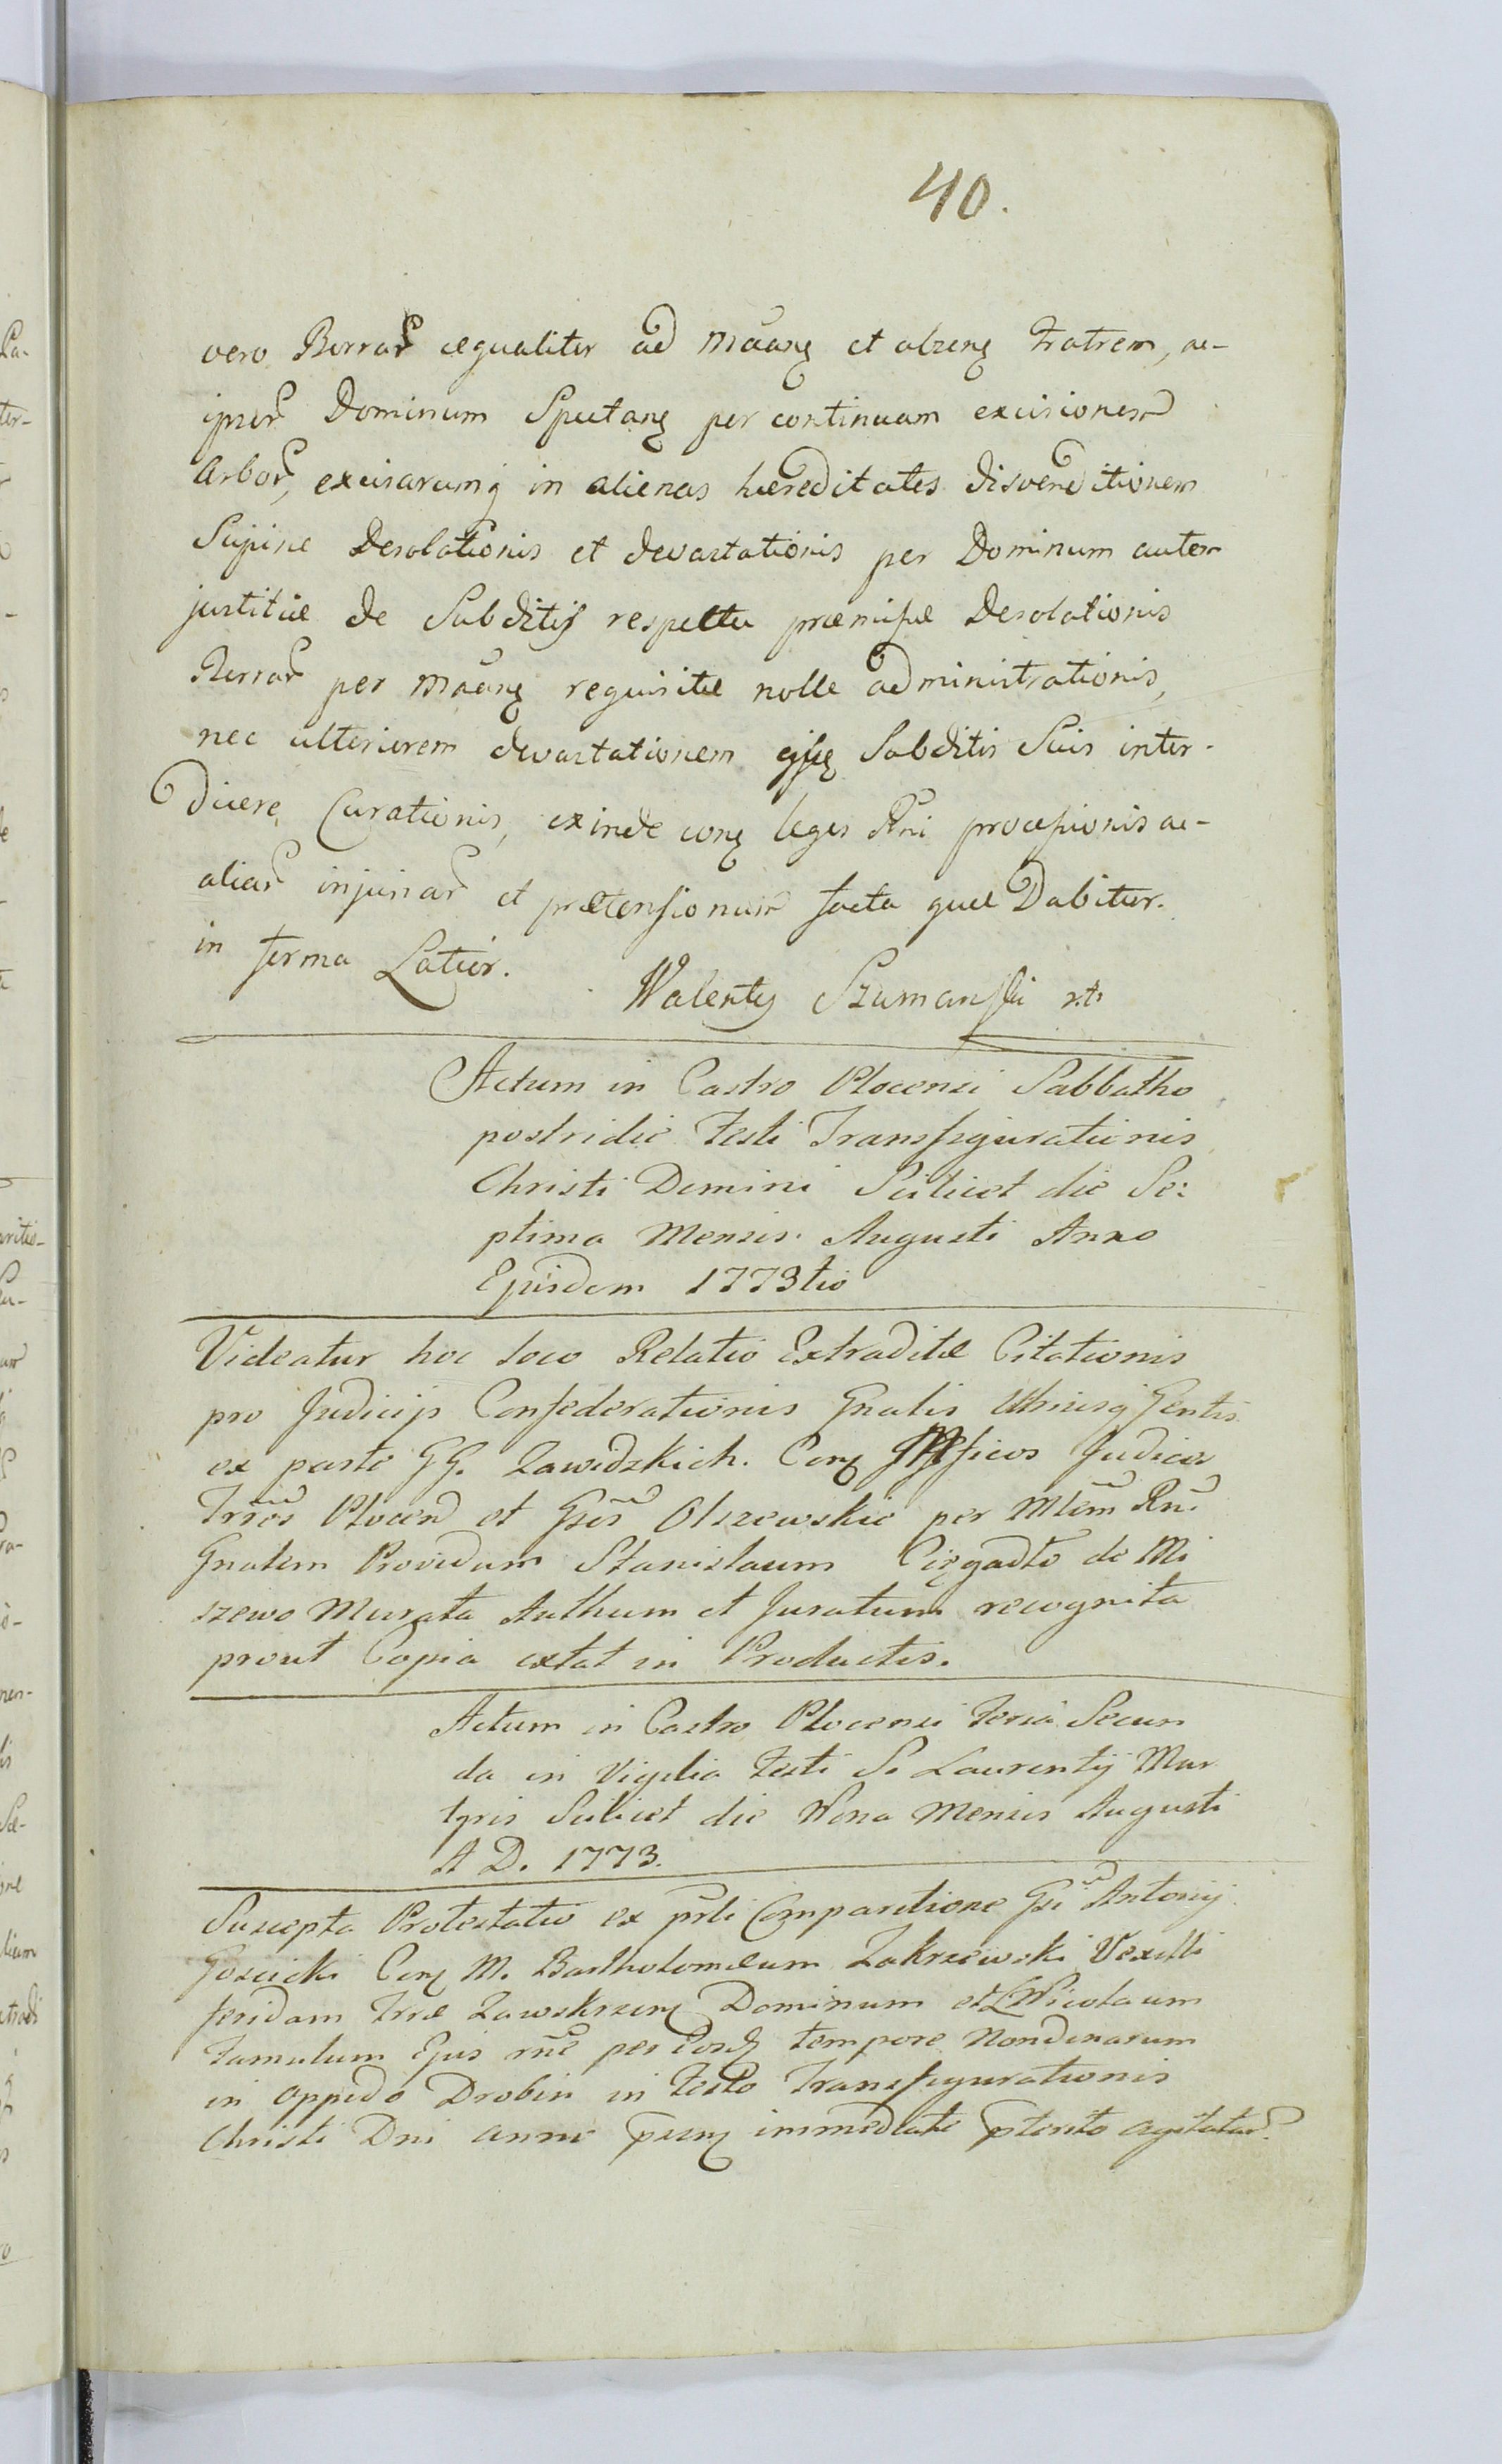 40.
vero Borrar aequaliter ad Maanq et alrenq Fratrem, ac-
ipser Dominum Spectanq per continuam excisionem
Arbor, excisarumq in alienas haereditates disvenditionem
Supine Desolationis et devastationis per Dominum autem
justitiae de Subditis respectu praemissae Desolationis
Borrar per Maanq requisitae nolle administrationis,
nec ulteriorem devastationem Subditis Suis inter-
dicere, Curationis, exinde conq leges Rni processionis ac-
aliar injuriar et praetensionum facta quae Dabitur.
in forma Latior. Walenty Szumanski
Actum in Castro Plocensi Sabbatho
postridie Festi Transfigurationis
Christi Domini Scilicet die Se:
ptima Mensis Augusti Anno
Ejusdem 1773tio
Videatur hoc loco Relatio Extraditae Citationis
pro Judicijs Confederationis Gnalis Utriusq Gentis
ex parte GG. Zawidzkich. Conq Judices
Trres Plocen et Gsos Olszewskie per Mtem Rni
Gnalem Providum Stanislaum de Mi
szewo Murata Authum et Juratum recognita
prout Copia extat in Productis.
Actum in Castro Plocensi Feria Secun
da in Vigilia Festi S. Laurentij Mar
tyris Scilicet die Nona Mensis Augusti
A D. 1773.
Suscepta Protestatio ex prli Comparitione Gsi Antonij
Goscicki Conq M. Bartholomaeum Zakrzewski Vexilli
feridam Trrae Zawskrzenq Dominum et L Nicolaum
Famulum Ejus rne per Eosd tempore Nondinarum
in Oppido Drobin in Festo Transfigurationis
Christi Dni anni immediate pterito agitatar